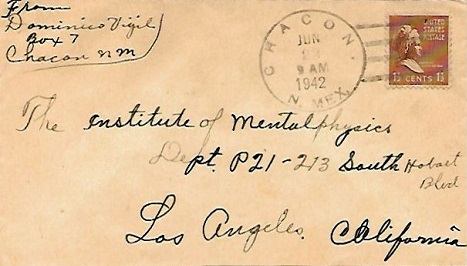 From
Dominico Vigil
Box 7
Chacon NM
CHACON
JUN
9 AM
1942
N. MEX.
UNITED
STATES
POSTAGE
1½ CENTS 1½
The Institute of Mentalphysics
Dept. P21-213 South Hobart
Blvd
Los Angeles. California